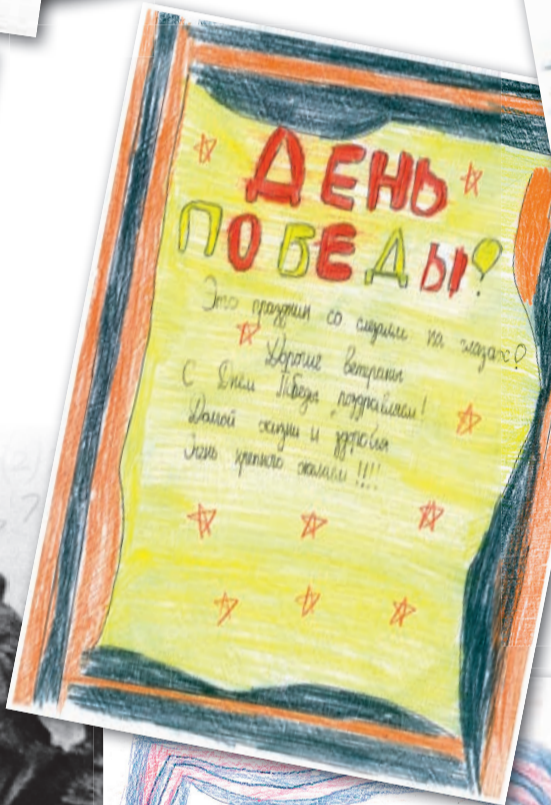 ДЕНЬ
ПОБЕДЫ!
Это праздник со слезами на глазах!
Дорогие ветераны
С Днём Победы поздравляем!
Долгой жизни и здоровья
Очень крепкого желаем!!!!